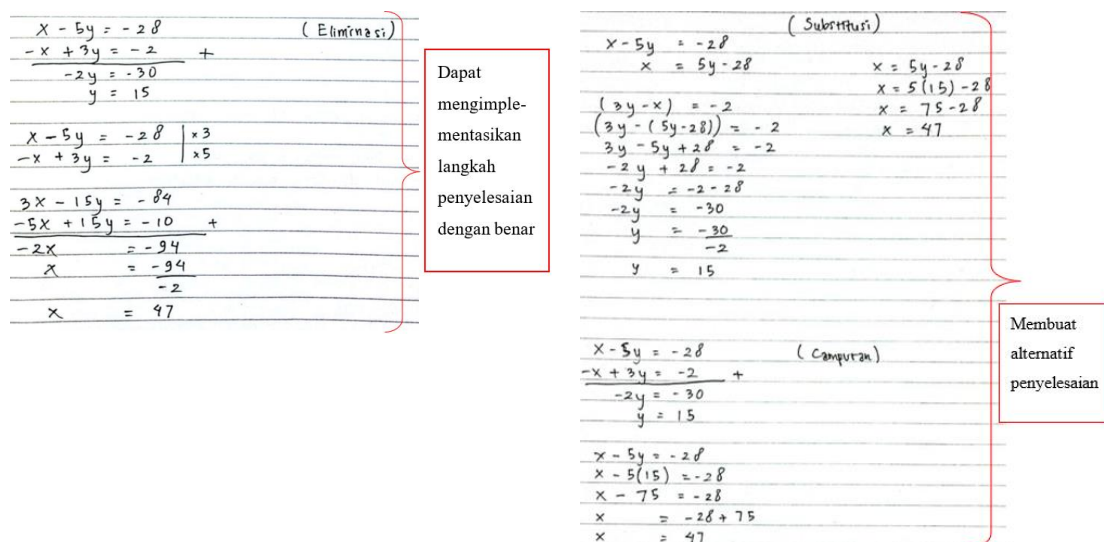 x - 5y = -28 (Eliminasi)
-x + 3y = -2 +
-2y = -30
y = 15
x - 5y = -28 | x3
-x + 3y = -2 | x5
3x - 15y = -84
-5x + 15y = -10 +
-2x = -94
x = -94
-2
x = 47
Dapat
mengimple-
mentasikan
langkah
penyelesaian
dengan benar
(Substitusi)
x - 5y = -28
x = 5y - 28
(3y - x) = -2
(3y - (5y - 28)) = -2
3y - 5y + 28 = -2
-2y + 28 = -2
-2y = -2 - 28
-2y = -30
y = -30
-2
y = 15
x = 5y - 28
x = 5(15) - 28
x = 75 - 28
x = 47
x - 5y = -28 (Campuran)
-x + 3y = -2 +
-2y = -30
y = 15
x - 5y = -28
x - 5(15) = -28
x - 75 = -28
x = -28 + 75
x = 47
Membuat
alternatif
penyelesaian